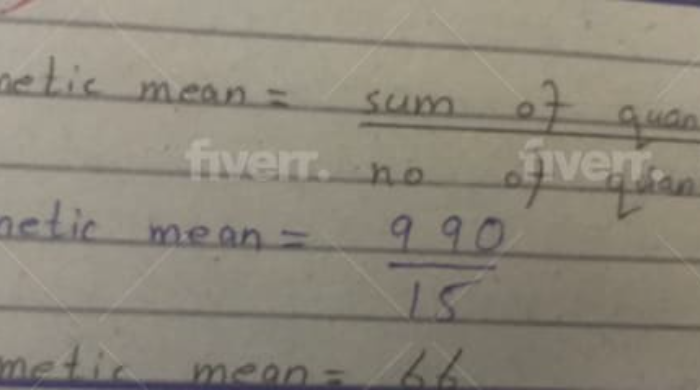 netic mean = sum of quan
no of quan
netic mean = 990
15
metic mean = 66
fiverr. fiverr.